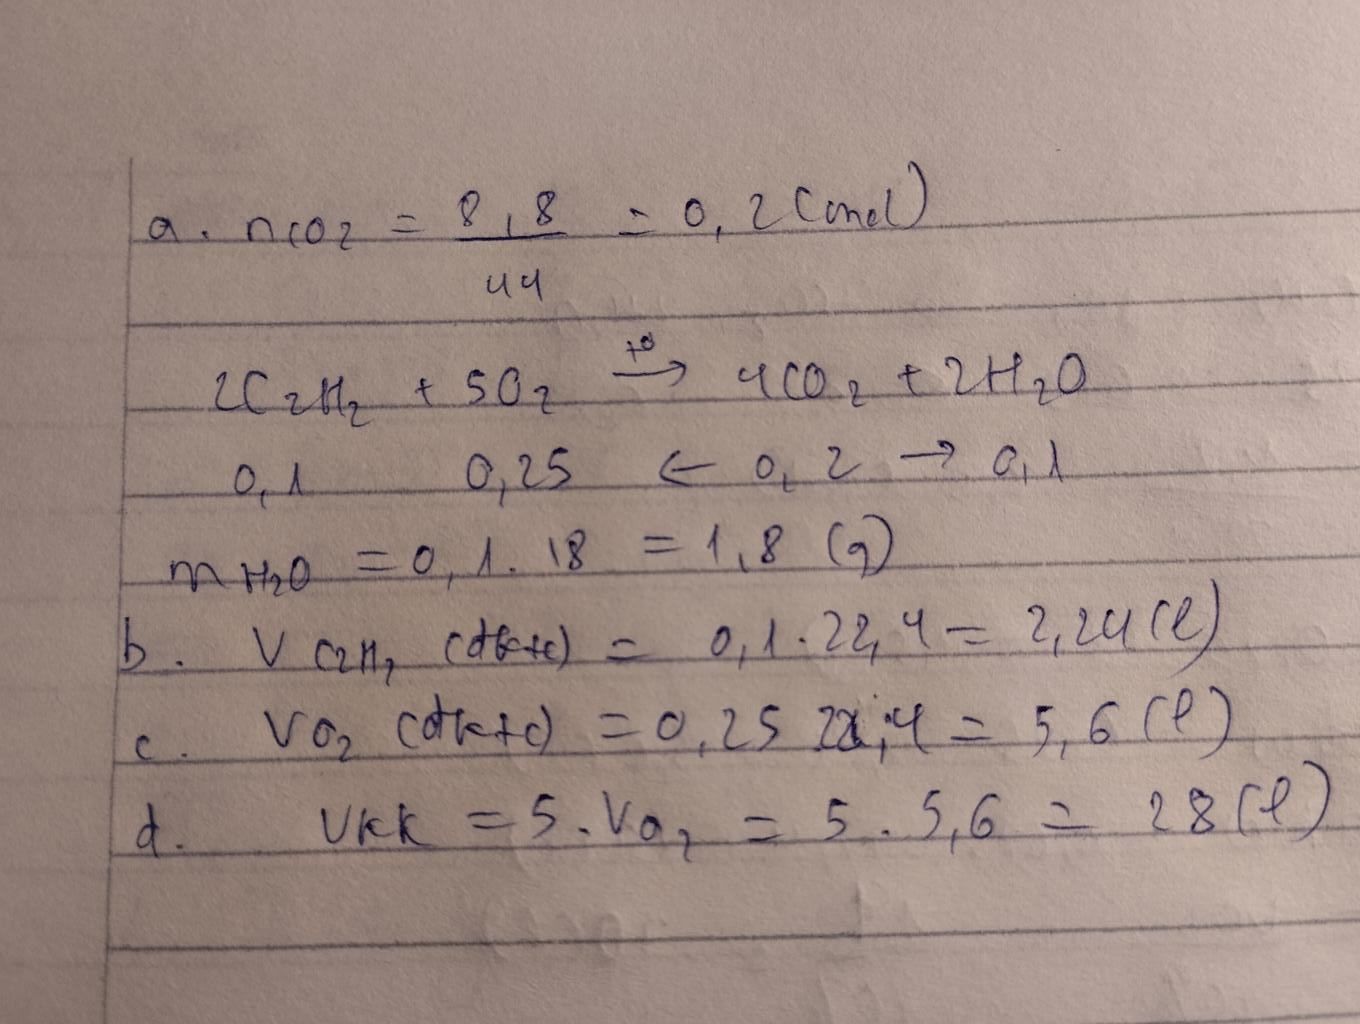 a. nCO2 = 8,8 / 44 = 0,2 (mol)
2C2H2 + 5O2 →(t°) 4CO2 + 2H2O
0,1 0,25 ← 0,2 → 0,1
mH2O = 0,1 . 18 = 1,8 (g)
b. V C2H2 (đktc) = 0,1 . 22,4 = 2,24 (l)
c. VO2 (đktc) = 0,25 22,4 = 5,6 (l)
d. Vkk = 5 . VO2 = 5 . 5,6 = 28 (l)